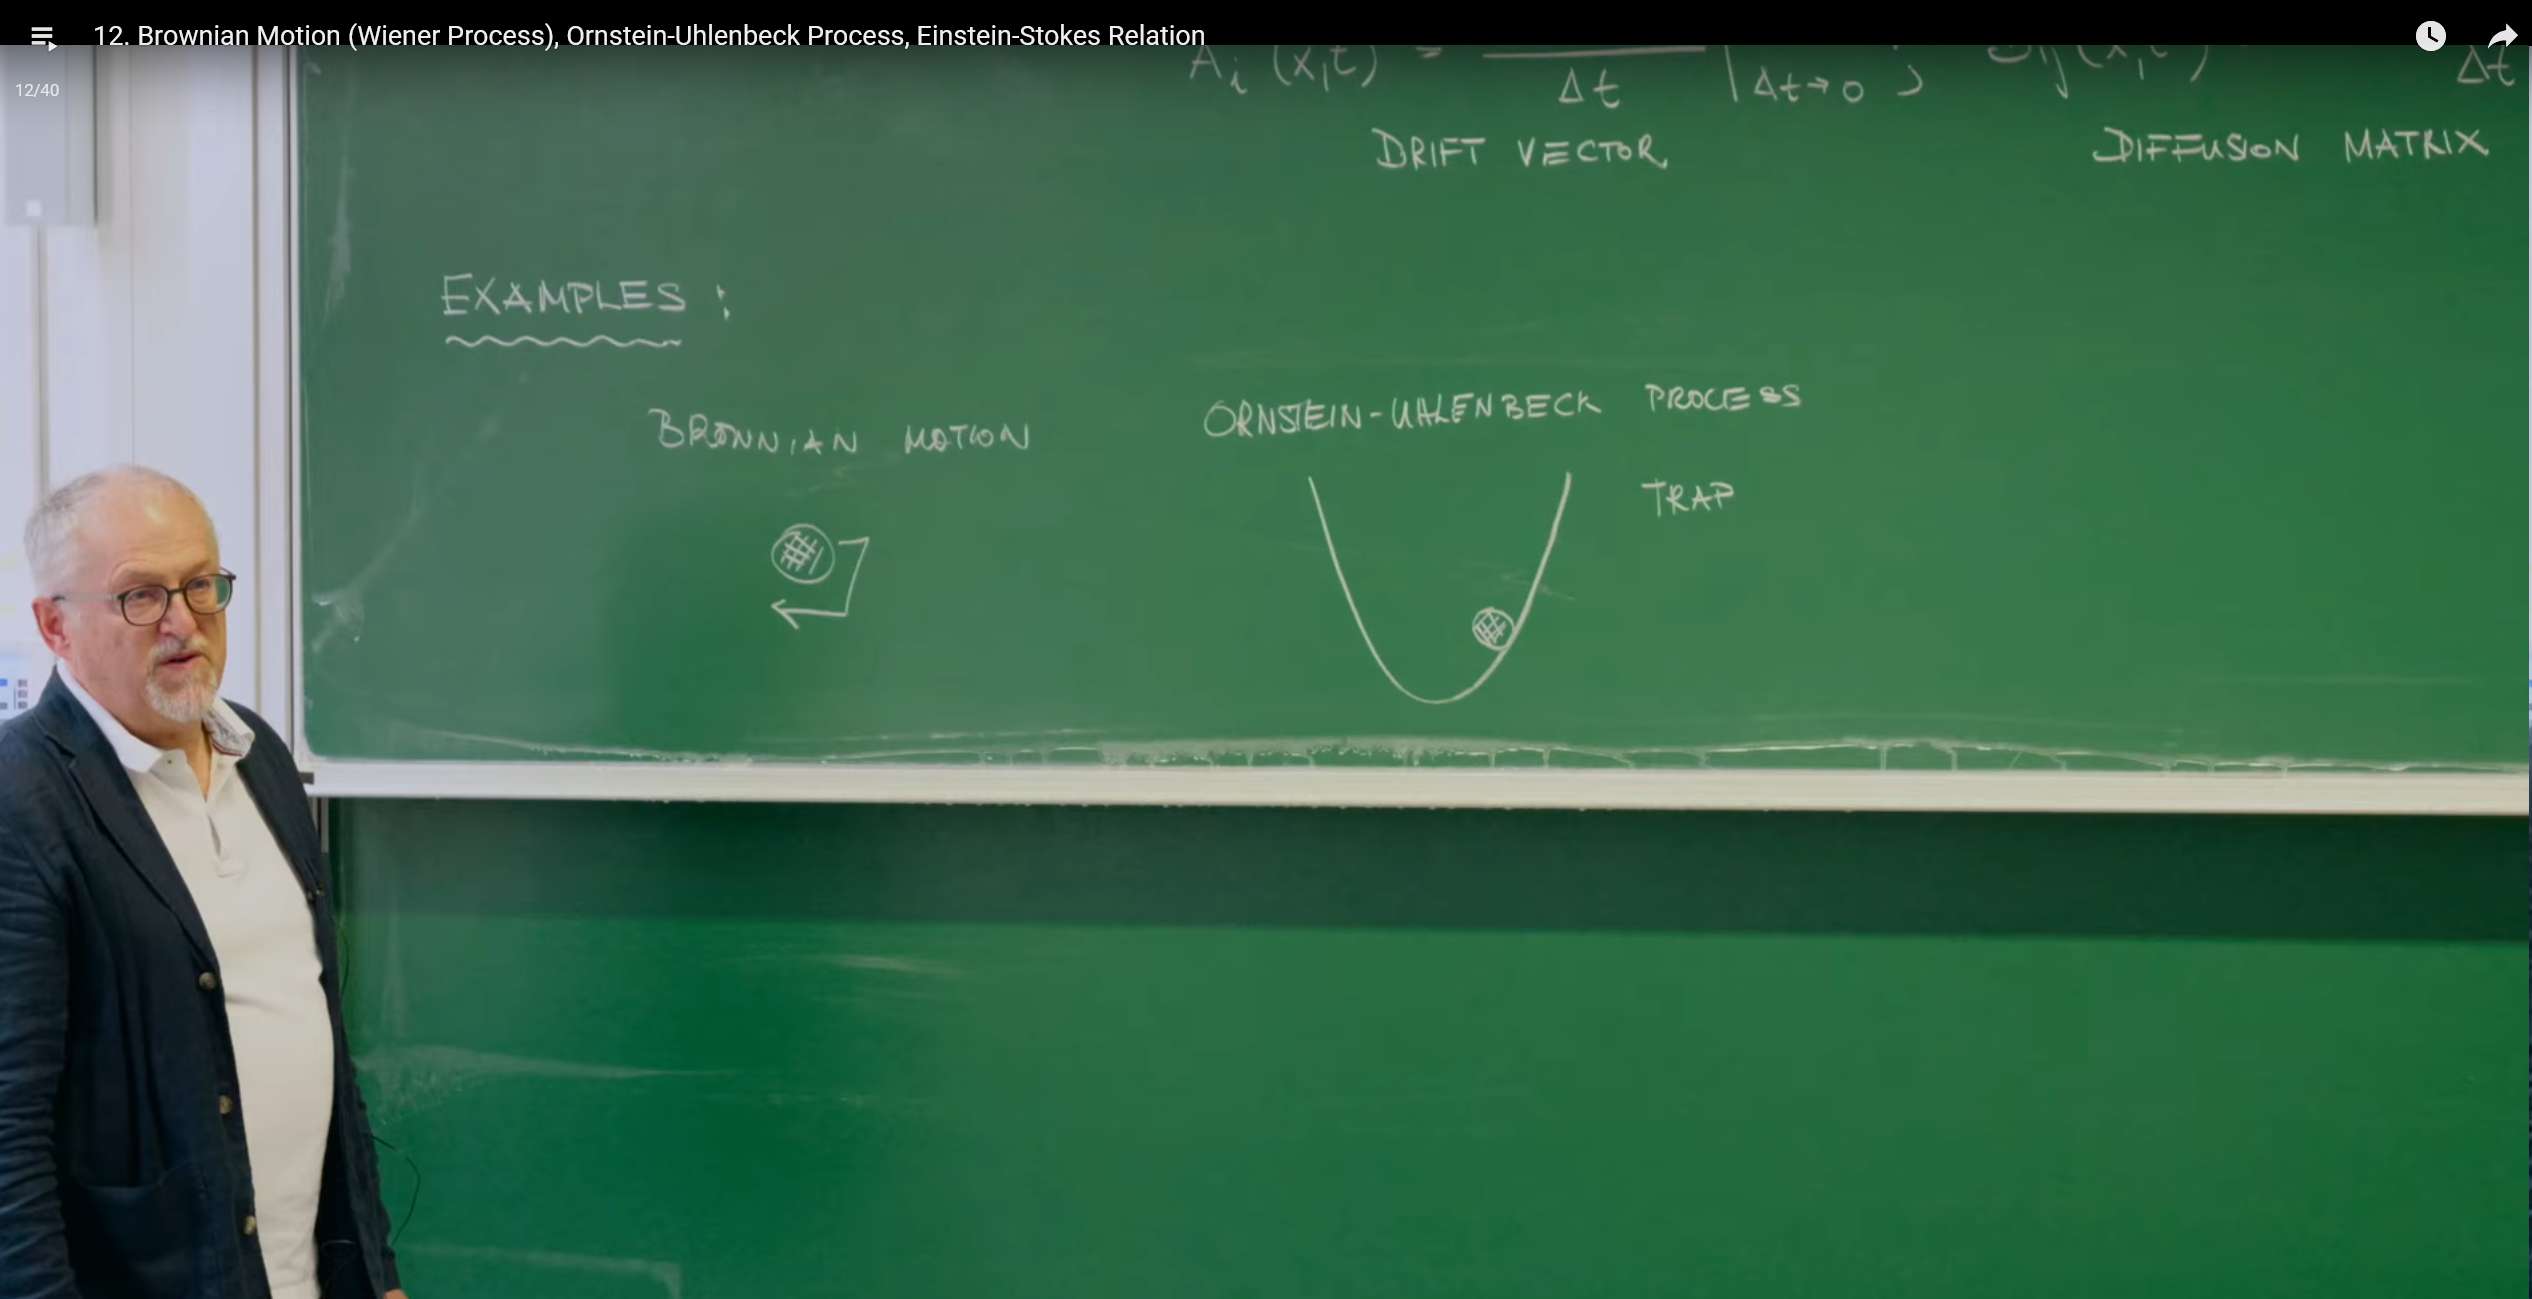 12. Brownian Motion (Wiener Process), Ornstein-Uhlenbeck Process, Einstein-Stokes Relation
12/40
Ai (x,t) = Δt | Δt→0 ; (x,t) Δt
DRIFT VECTOR, DIFFUSION MATRIX
EXAMPLES :
BROWNIAN MOTION ORNSTEIN-UHLENBECK PROCESS
TRAP